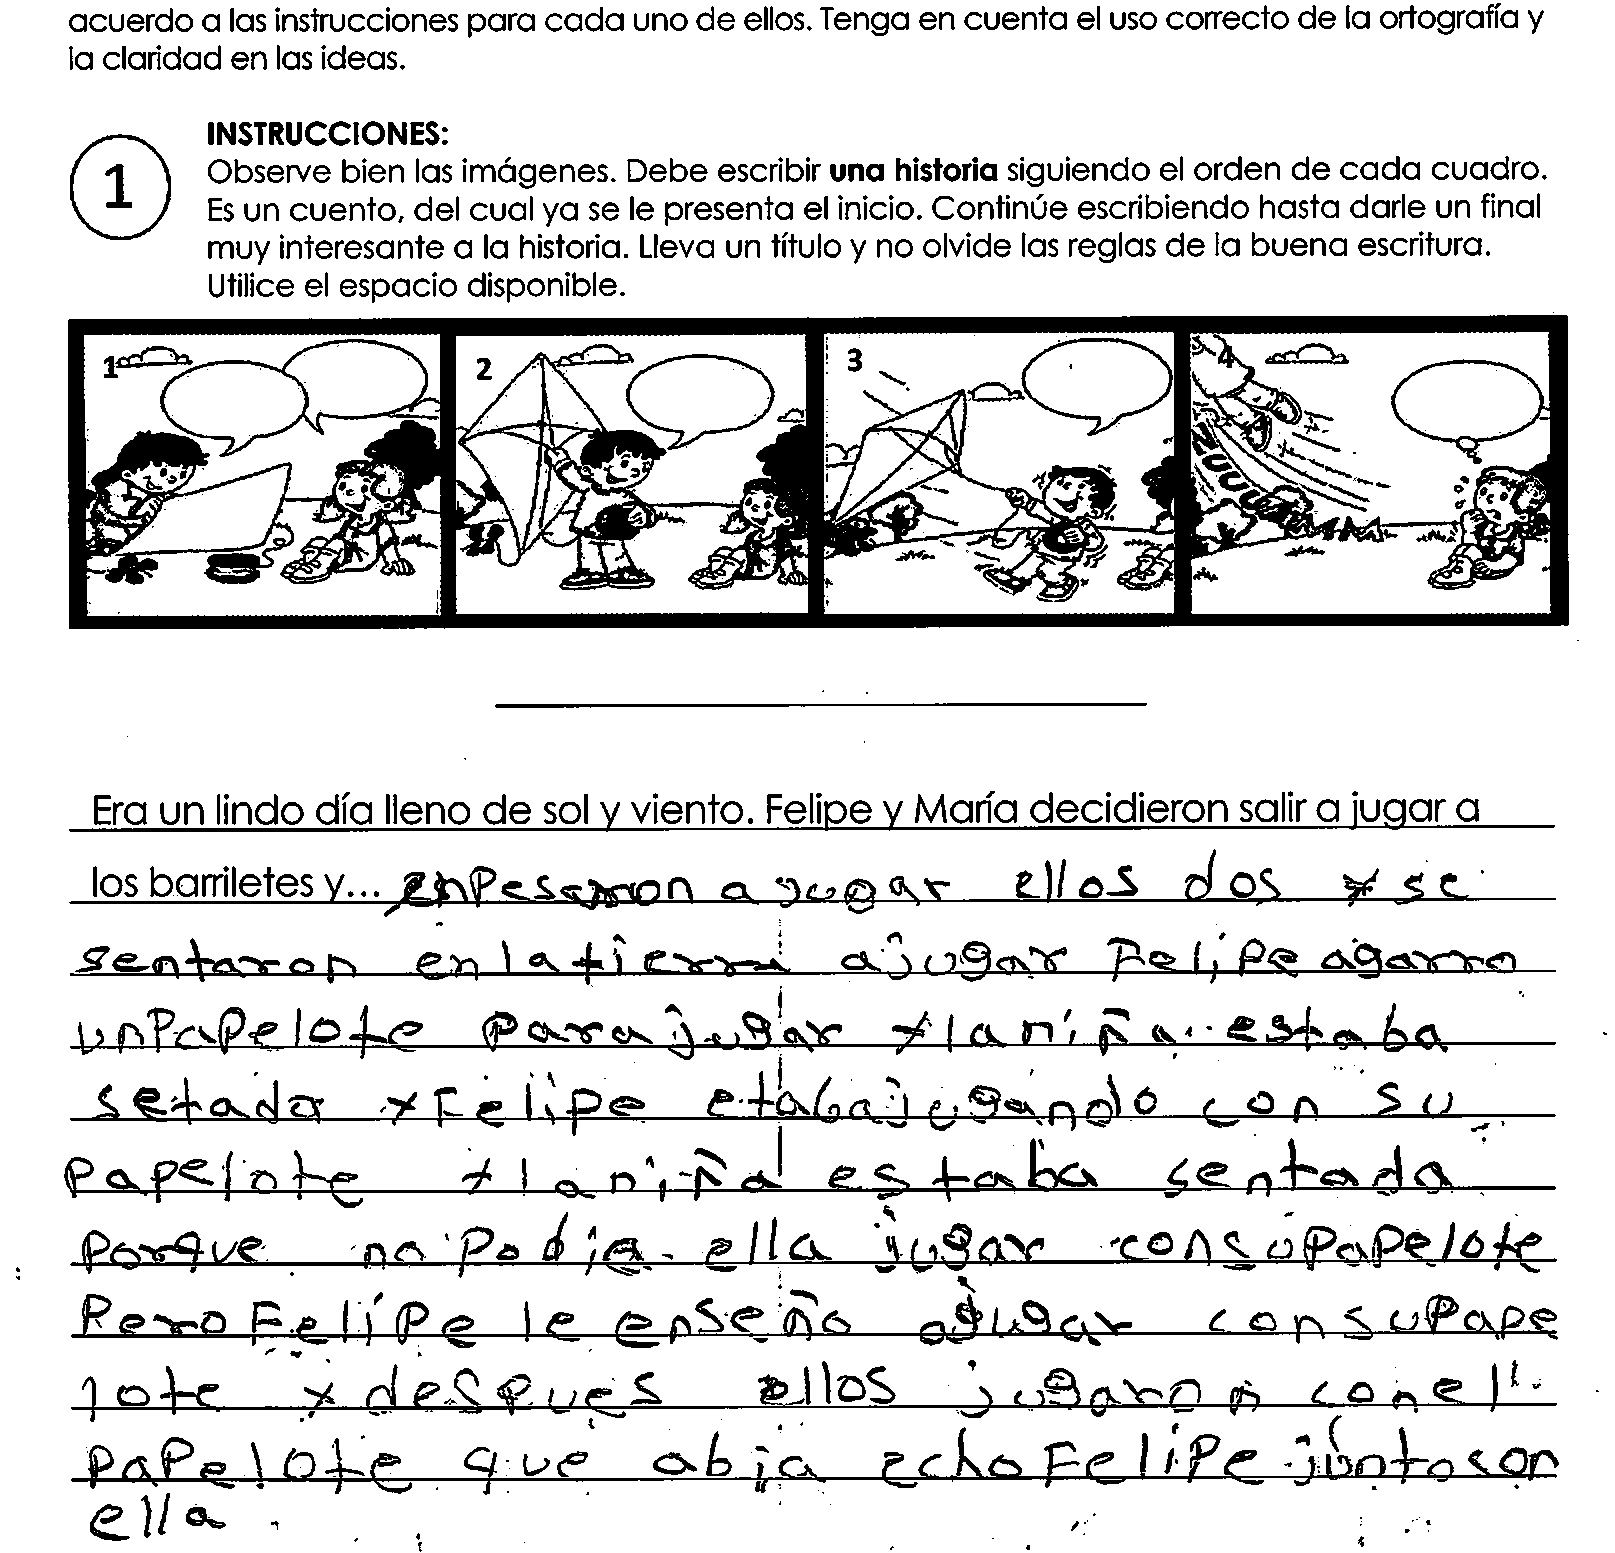 acuerdo a las instrucciones para cada uno de ellos. Tenga en cuenta el uso correcto de la ortografía y
la claridad en las ideas.
1
INSTRUCCIONES:
Observe bien las imágenes. Debe escribir una historia siguiendo el orden de cada cuadro.
Es un cuento, del cual ya se le presenta el inicio. Continúe escribiendo hasta darle un final
muy interesante a la historia. Lleva un título y no olvide las reglas de la buena escritura.
Utilice el espacio disponible.
1 2 3 4
Era un lindo día lleno de sol y viento. Felipe y María decidieron salir a jugar a
los barriletes y... enpesaron a jugar ellos dos y se
sentaron en la tierra a jugar Felipe agarro
un papelote para jugar y la niña estaba
setada y Felipe etaba jugando con su
papelote y la niña estaba sentada
porque no podia ella jugar con su papelote
Pero Felipe le enseño a jugar con su pape
lote y despues ellos jugaron con el
papelote que abia echo Felipe junto con
ella.